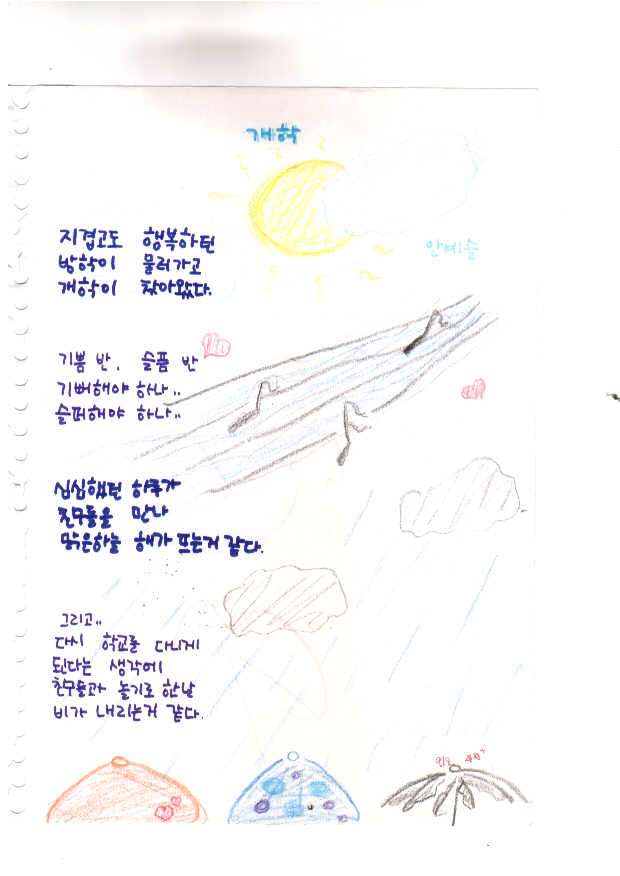 개학
안예슬
지겹고도 행복하던
방학이 물러가고
개학이 찾아왔다.
기쁨 반, 슬픔 반
기뻐해야 하나..
슬퍼해야 하나..
심심했던 하루가
친구들을 만나
맑은하늘 해가 뜨는거 같다.
그리고..
다시 학교를 다니게
된다는 생각에
친구들과 놀기로 한날
비가 내리는거 같다.